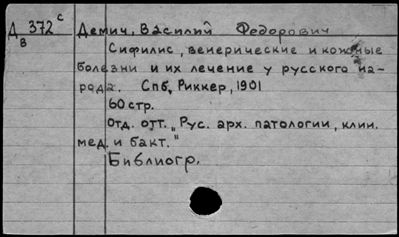 Д 372 с Демич, Василий Федорович
в
Сифилис, венерические и кожные
болезни и их лечение у русского на-
рода. Спб, Риккер, 1901
60 стр.
Отд. отт. „Рус. арх. патологии, клин.
мед. и бакт."
Библиогр.